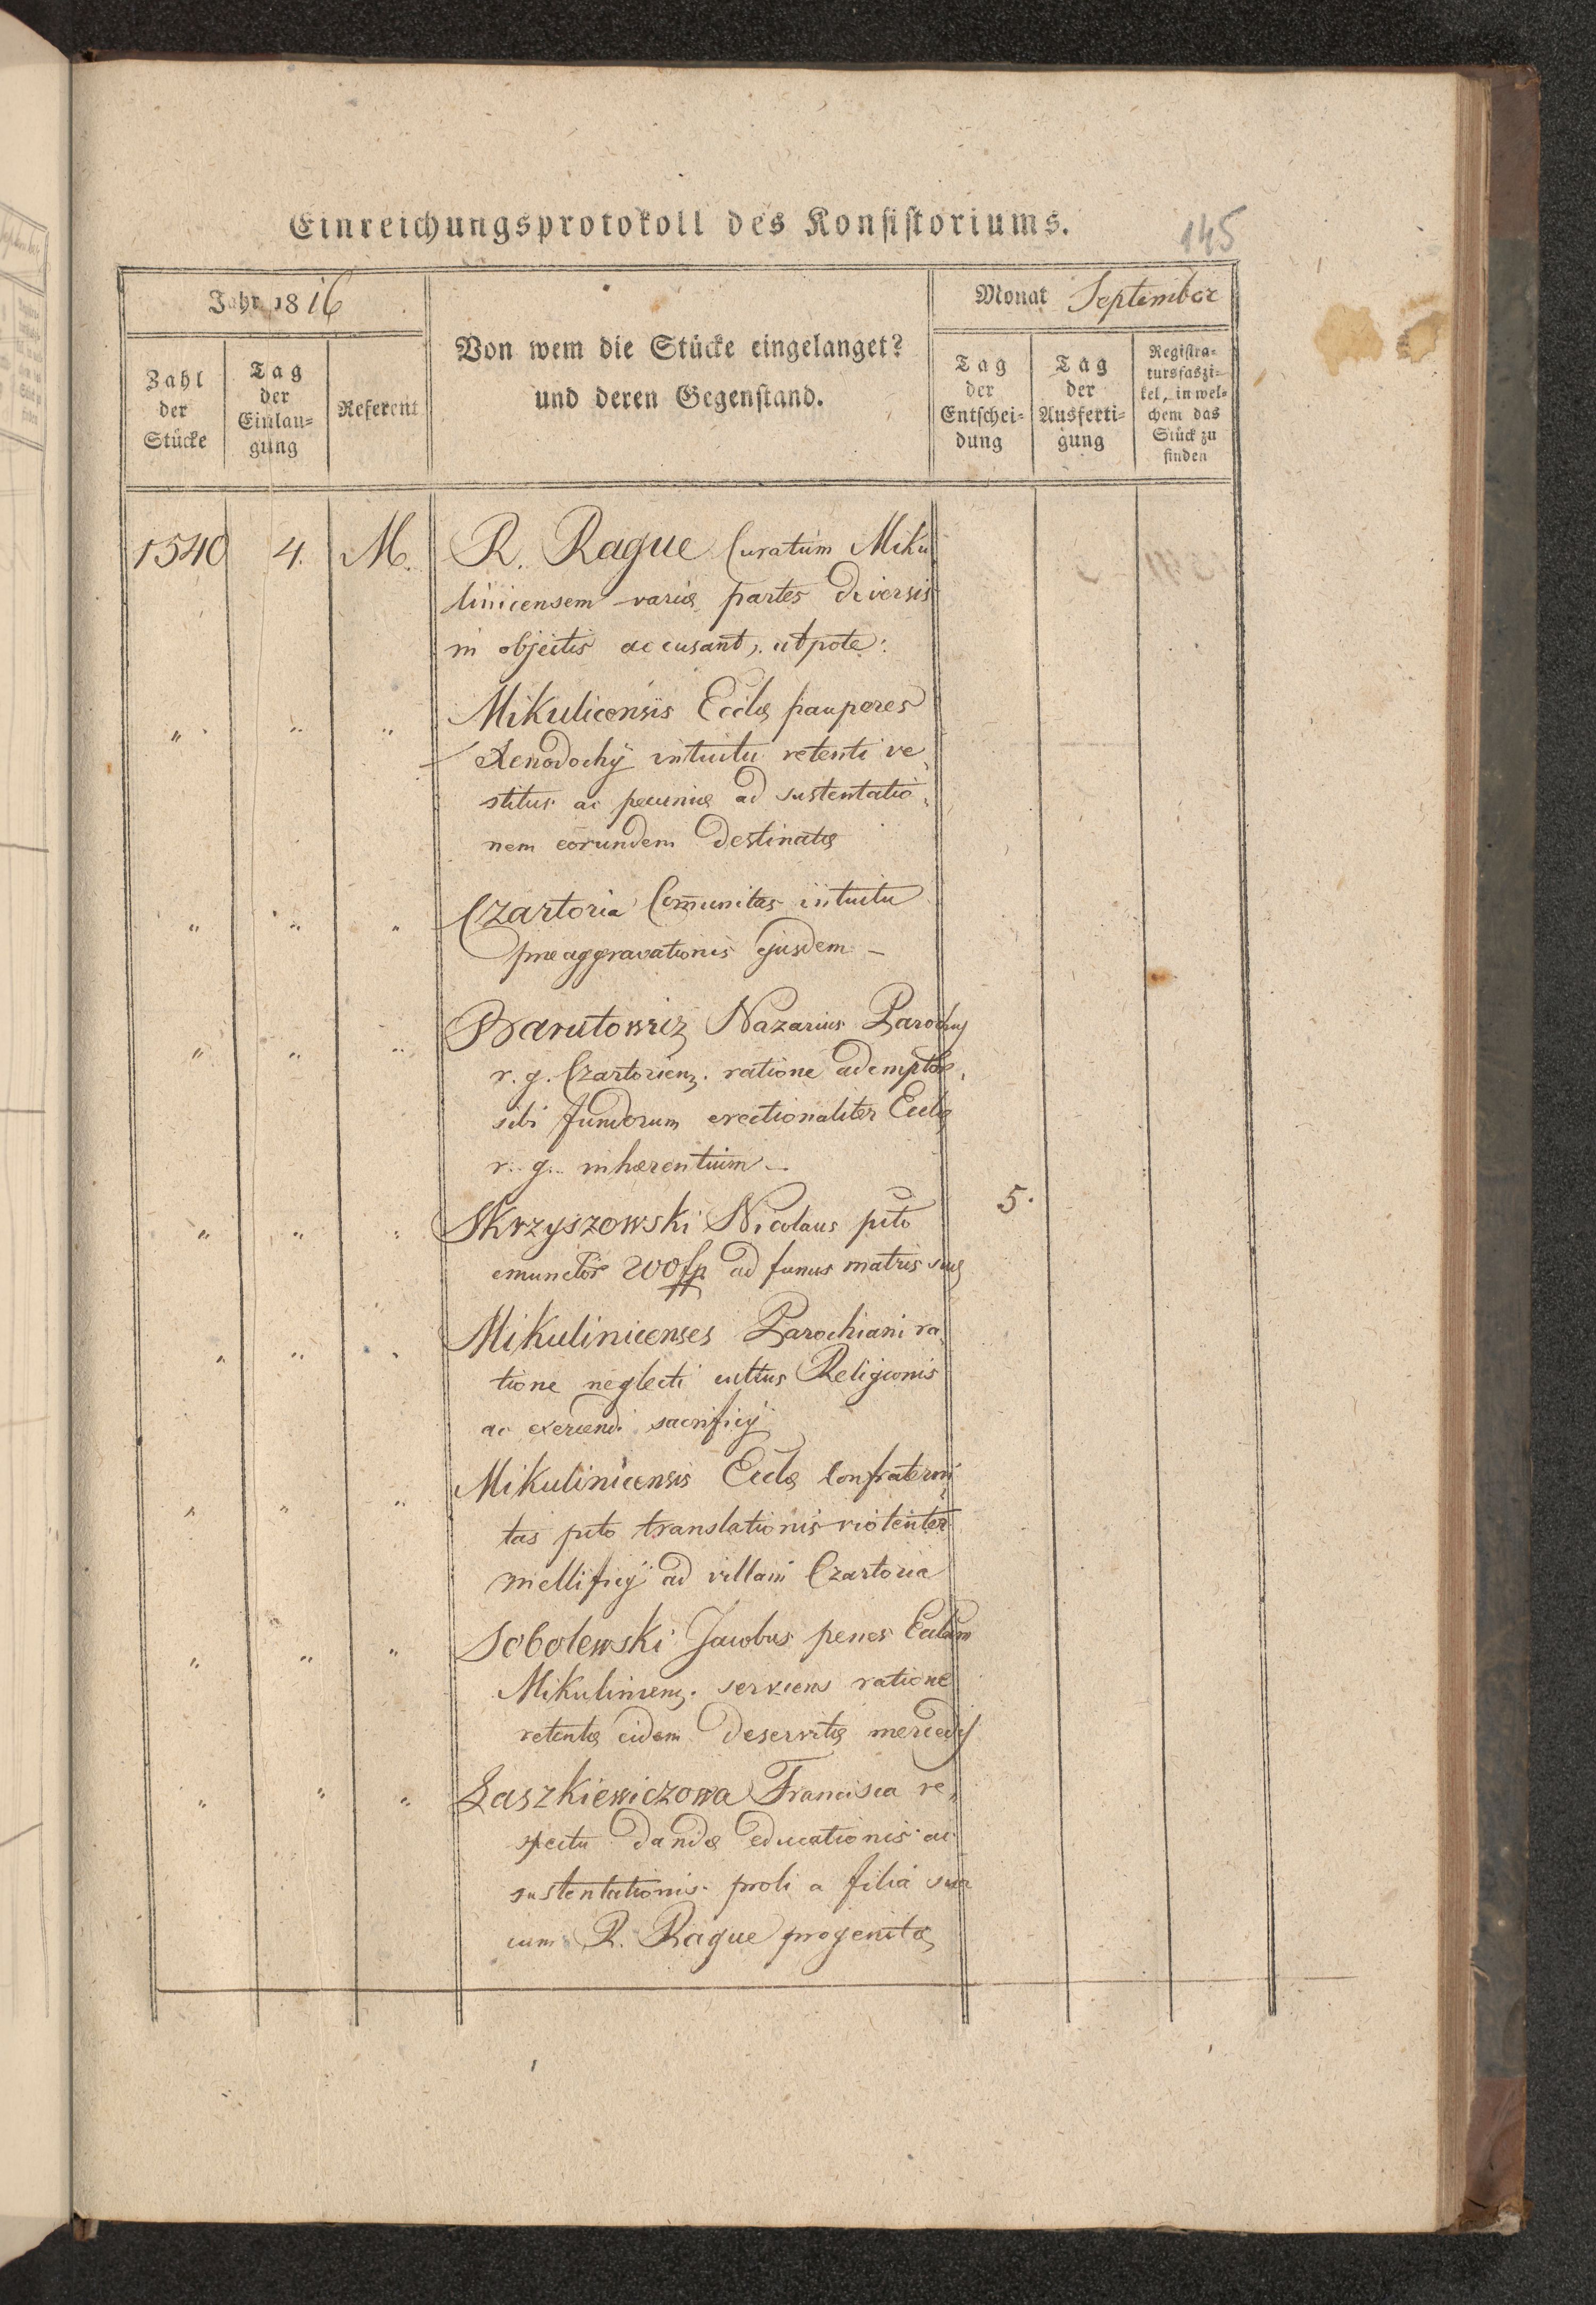 Einreichungsprotokoll des Konsistoriums.
145
Jahr 1816
Monat September
Von wem die Stücke eingelanget?
und deren Gegenstand.
Zahl
der
Stücke
Tag
der
Einlan=
gung
Referent
Tag
der
Entschei=
dung
Tag
der
Ausferti=
gung
Registra=
tursfaszi=
kel, in wel=
chem das
Stück zu
finden
1540 4. M. R. Rague Curatum Miku
linicensem variæ partes diversis
in objectis accusant, utpote:
" " " Mikulicensis Eccłæ pauperes
Xenodochÿ intuitu retenti ve,
stitus ac pecuniæ ad sustentatio,
nem eorundem destinatæ
" " " Czartoria Com̄unitas intuitu
præaggravationis ejusdem –
" " " Barutowicz Nazarius Parochus
r. g. Czartoriens. ratione ademptor,
sibi fundorum erectionaliter Eccłæ
r. g. inhærentium –
" " " Skrzyszowski Nicolaus pcto 5.
emunctor 200 fp ad funus matris suæ
" " " Mikulinicenses Parochiani ra,
tione neglecti cultus Religionis
ac exercendi sacrificÿ
" " " Mikulinicensis Eccłæ Confraterni,
tas pcto translationis violenter
mellificÿ ad villam Czartoria
" " " Sobolewski Jacobus penes Eccłam
Mikuliniens. serviens ratione
retentæ eidem deservitæ mercedis
" " " Łaszkiewiczowa Francisca re,
spectu dandæ educationis ac
sustentationis proli a filia sua
cum R. Rague progenitæ